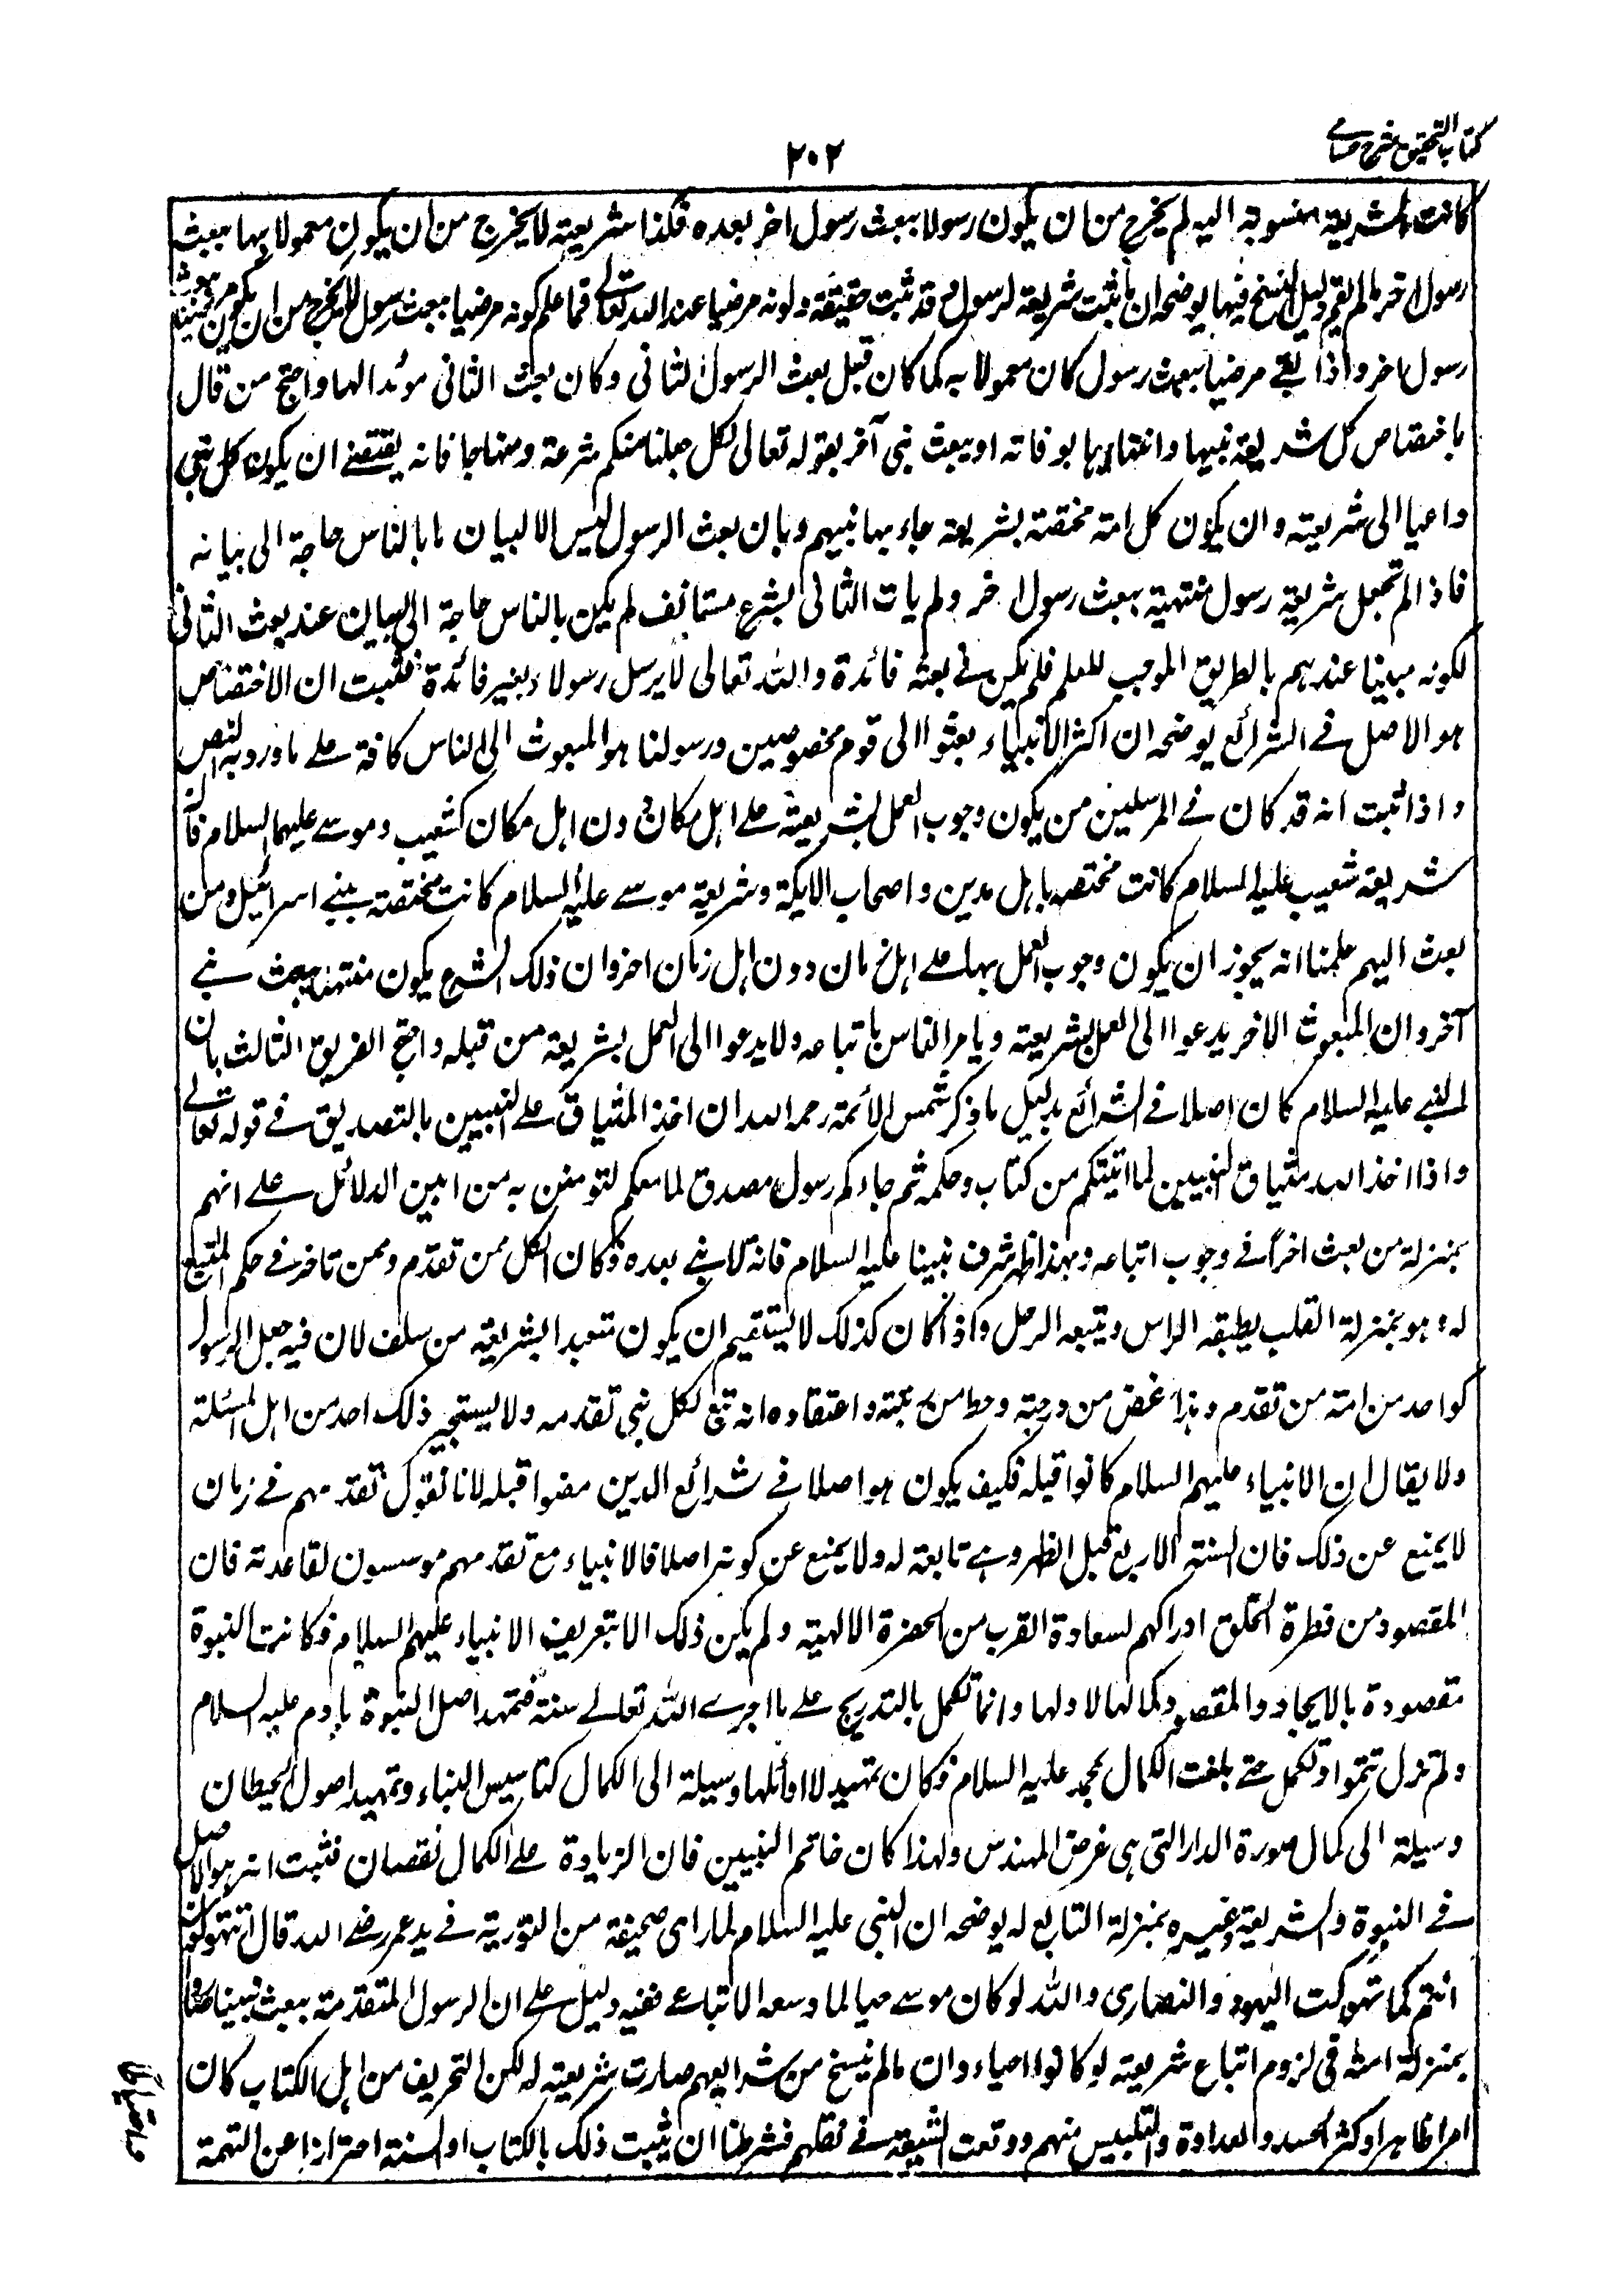 كتاب التحقيق شرح حسامي
٢٠٢
كانت الشريعة منسوبة اليه لم يخرج من ان يكون رسولا ببعث رسول اخر بعده فكذا شريعته لا يخرج من ان يكون معمولا بها ببعث
رسول اخر ما لم يقم دليل النسخ فيها يوضحه ان ما ثبت شريعة لرسول فقد ثبت حقيته وكونه مرضيا عند الله تعالى فما علم كونه مرضيا ببعث رسول لا يخرج من ان يكون مرضيا ببعث
رسول اخر واذا بقى مرضيا ببعث رسول كان معمولا به كما كان قبل بعث الرسول الثانى وكان بعث الثانى مؤيدا لها واحتج من قال
باختصاص كل شريعة نبيها وانتهائها بوفاته او ببعث نبى آخر بقوله تعالى لكل جعلنا منكم شرعة ومنهاجا فانه يقتضے ان يكون كل نبى
داعيا الى شريعته وان يكون كل امته مختصة بشريعة جاء بها نبيهم وبان بعث الرسول ليس الا لبيان ما بالناس حاجة الى بيانه
فاذا لم تجعل شريعة رسول منتهية ببعث رسول اخر ولم يات الثانى بشرع مستانف لم يكن بالناس حاجة الى البيان عند بعث الثانى
لكونه مبينا عندهم بالطريق الموجب للعلم فلم يكن فى بعثه فائدة والله تعالى لا يرسل رسولا بغير فائدة فثبت ان الاختصاص
هو الاصل فے الشرائع يوضحه ان اكثر الانبياء بعثوا الى قوم مخصوصين ورسولنا هو المبعوث الى الناس كافة على ما ورد به النص
واذا ثبت انه قد كان فے المرسلين من يكون وجوب العمل بشريعته على اهل مكان دون اهل مكان كشعيب وموسے عليهما السلام فان
شريعة شعيب عليه السلام كانت مختصة باهل مدين واصحاب الايكة وشريعة موسے عليه السلام كانت مختصة ببنے اسرائيل ومن
بعث اليهم علمنا انه يجوز ان يكون وجوب العمل بها على اهل زمان دون اهل زمان اخر وان ذلك الشرع يكون منتهيا ببعث نبے
آخر وان المبعوث الاخر يدعوا الى العمل بشريعته ويامر الناس باتباعه ولا يدعوا الى العمل بشريعة من قبله واحتج الفريق الثالث بان
النبے عليه السلام كان اصلا فے الشرائع بدليل ما ذكر شمس الائمة رحمه الله ان اخذ الميثاق على النبيين بالتصديق فے قوله تعالے
واذ اخذ الله ميثاق النبيين لما اتيتكم من كتاب وحكمة ثم جاءكم رسول مصدق لما معكم لتومنن به من ابين الدلائل على انهم
بمنزلة من بعث اخرا فے وجوب اتباعه وبهذا ظهر شرف نبينا عليه السلام فانه لا نبے بعده فكان الكل ممن تقدم وممن تاخر فے حكم المتبع
له وهو بمنزلة القلب يطيعه الراس ويتبعه الرجل واذا كان كذلك لا يستقيم ان يكون متعبدا بشريعة من سلف لان فيه جعل الرسول
كواحد من امة من تقدم وهذا غض من درجته وحط من رتبته واعتقاده انه تبع لكل نبى تقدمه ولا يستجيز ذلك احد من اهل المسئلة
ولا يقال ان الانبياء عليهم السلام كانوا قبله فكيف يكون هو اصلا فے شرائع الدين مضوا قبله لانا نقول تقدمهم فے زمان
لا يمنع عن ذلك فان السنة الاربع قبل الظهر وهے تابعة له ولا يمنع عن كونه اصلا فالانبياء مع تقدمهم موسسون لقاعدته فان
المقصود من فطرة الخلق ادراكهم لسعادة القرب من الحضرة الالهية ولم يكن ذلك الا بتعريف الانبياء عليهم السلام فكانت النبوة
مقصودة بالايجاد والمقصود كمالها لا اولها وانما تكمل بالتدريج على ما اجرے الله تعالے سنته فتمهد اصل النبوة بادم عليه السلام
ولم تزل تنمو وتكمل حتے بلغت الكمال بمحمد عليه السلام فكان تمهيد الاوائلها وسيلة الى الكمال كتاسيس البناء وتمهيد اصول الحيطان
وسيلة الى كمال صورة الدار التى هى غرض المهندس ولهذا كان خاتم النبيين فان الزيادة على الكمال نقصان فثبت انه هو الاصل
فے النبوة والشريعة وغيره بمنزلة التابع له يوضحه ان النبى عليه السلام لما راى صحيفة من التورية فے يد عمر رضے الله قال امتهوكون
انتم كما تهوكت اليهود والنصارى والله لو كان موسے حيا لما وسعه الا اتباعے ففيه دليل على ان الرسول المتقدمة ببعث نبينا صاروا
بمنزلة امته فى لزوم اتباع شريعته لو كانوا احياء وان ما لم ينسخ من شرايعهم صارت شريعة له لكن التحريف من اهل الكتاب كان
امرا ظاهرا وكثر الحسد والعداوة والتلبيس منهم ووقعت الشبهة فے نقلهم فشرطنا ان يثبت ذلك بالكتاب او السنة احترازا عن التهمة